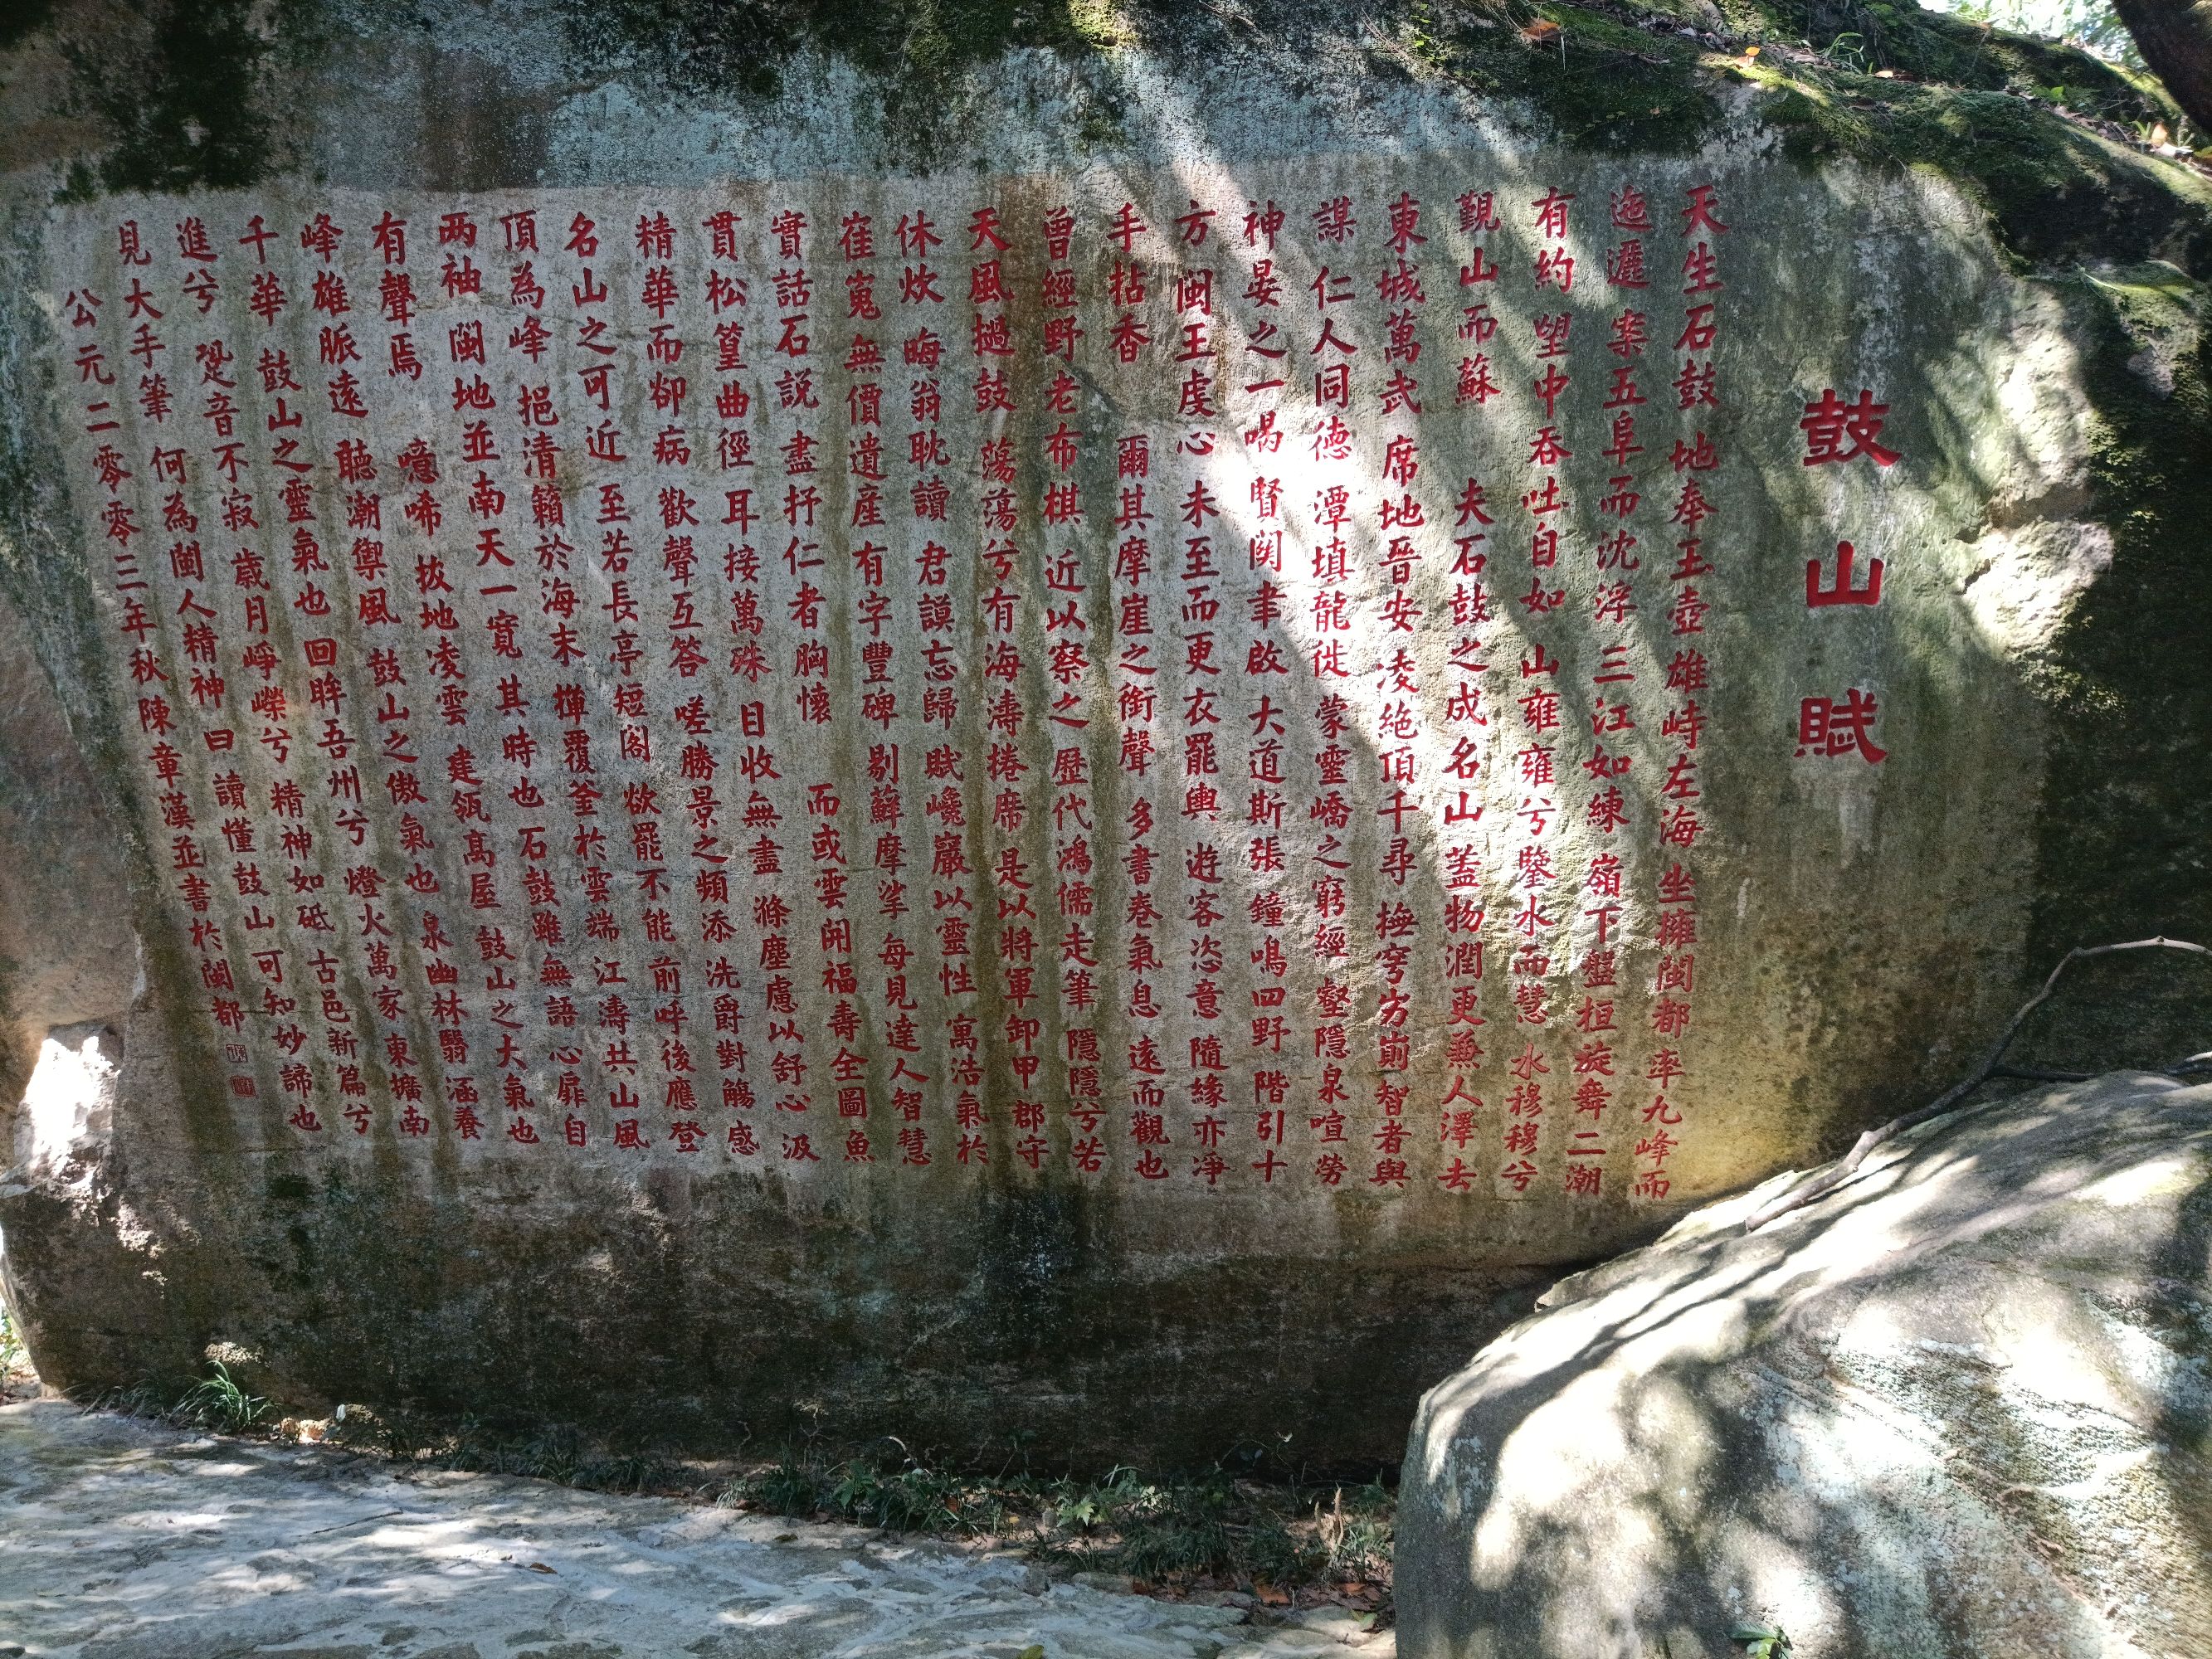 鼓山賦
天生石鼓 地奉玉壺 雄峙左海 坐擁閩都 率九峰而
迤邐 案五阜而沈浮 三江如練 嶺下盤桓旋舞 二潮
有約 望中吞吐自如 山雍雍兮鑒水而慧 水穆穆兮
覲山而蘇 夫石鼓之成名山 蓋物潤更無人澤去
東城萬武 席地晉安 凌絕頂千尋 撫穹岩崱 智者與
謀 仁人同德 潭填龍徙 蒙靈嶠之窮經 壑隱泉喧 勞
神晏之一喝 賢関聿啟 大道斯張 鐘鳴四野 階引十
方 閩王虔心 未至而更衣罷輿 遊客恣意 隨緣亦凈
手拈香 爾其摩崖之銜聲 多書卷氣息 遠而觀也
曾經野老布棋 近以察之 歷代鴻儒走筆 隱隱兮若
天風撾鼓 蕩蕩兮有海濤捲席 是以將軍卸甲 郡守
休炊 晦翁耽讀 君謨忘歸 賦巉巖以靈性 寓浩氣於
崔嵬 無價遺産 有字豐碑 剔蘚摩挲 每見達人智慧
實話石説 盡抒仁者胸懷 而或雲開福壽全圖 魚
貫松篁曲徑 耳接萬殊 目收無盡 滌塵慮以舒心 汲
精華而卻病 歡聲互答 嗟勝景之頻添 洗爵對觴 感
名山之可近 至若長亭短閣 欲罷不能 前呼後應 登
頂為峰 挹清籟於海末 撣覆釜於雲端 江濤共山風
两袖 閩地並南天一寬 其時也 石鼓雖無語 心扉自
有聲焉 噫唏 拔地凌雲 建瓴高屋 鼓山之大氣也
峰雄脈遠 聽潮禦風 鼓山之傲氣也 泉幽林翳 涵養
千華 鼓山之靈氣也 回眸吾州兮 燈火萬家 東擴南
進兮 跫音不寂 歲月崢嶸兮 精神如砥 古邑新篇兮
見大手筆 何為閩人精神 曰 讀懂鼓山 可知妙諦也
公元二零零三年秋 陳章漢並書於閩都